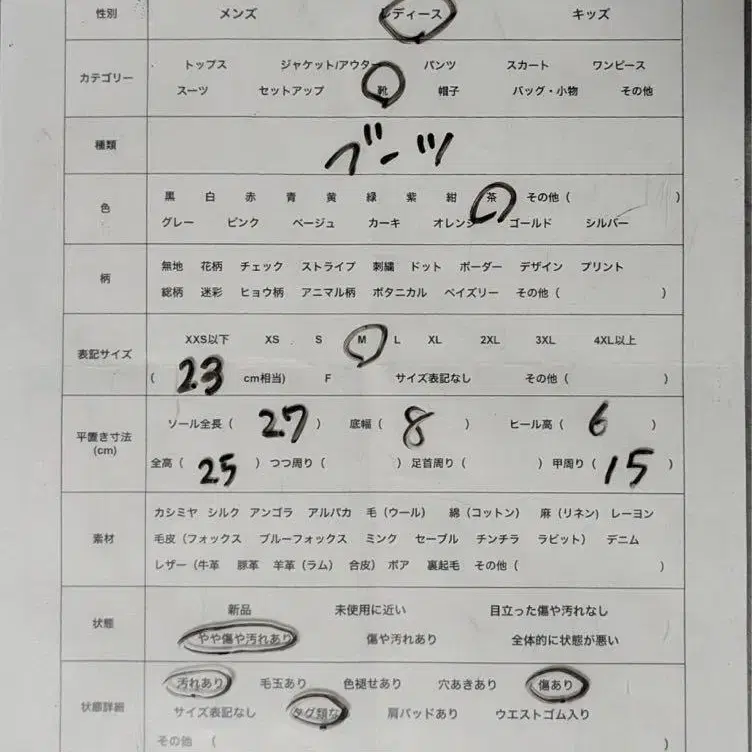 性別 メンズ レディース キッズ
カテゴリー トップス ジャケット/アウター パンツ スカート ワンピース
スーツ セットアップ 靴 帽子 バッグ・小物 その他
種類 ブーツ
色 黒 白 赤 青 黄 緑 紫 紺 茶 その他 ( )
グレー ピンク ベージュ カーキ オレンジ ゴールド シルバー
柄 無地 花柄 チェック ストライプ 刺繍 ドット ボーダー デザイン プリント
総柄 迷彩 ヒョウ柄 アニマル柄 ボタニカル ペイズリー その他 ( )
表記サイズ XXS以下 XS S M L XL 2XL 3XL 4XL以上
( 23 cm相当) F サイズ表記なし その他 ( )
平置き寸法 (cm) ソール全長 ( 27 ) 底幅 ( 8 ) ヒール高 ( 6 )
全高 ( 25 ) つつ周り ( ) 足首周り ( ) 甲周り ( 15 )
素材 カシミヤ シルク アンゴラ アルパカ 毛 (ウール) 綿 (コットン) 麻 (リネン) レーヨン
毛皮 (フォックス ブルーフォックス ミンク セーブル チンチラ ラビット) デニム
レザー (牛革 豚革 羊革 (ラム) 合皮) ボア 裏起毛 その他 ( )
状態 新品 未使用に近い 目立った傷や汚れなし
やや傷や汚れあり 傷や汚れあり 全体的に状態が悪い
状態詳細 汚れあり 毛玉あり 色褪せあり 穴あきあり 傷あり
サイズ表記なし タグ類なし 肩パッドあり ウエストゴム入り
その他 ( )